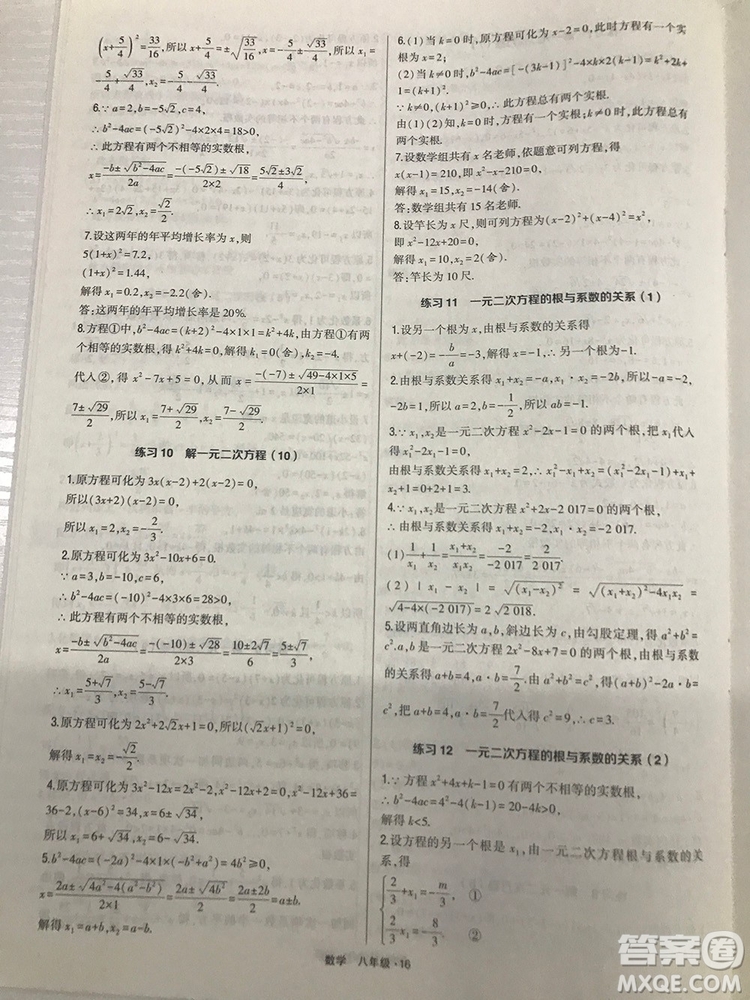 (x+5/4)²=33/16,所以x+5/4=±√(33/16),所以x₁=
-5/4+√33/4,x₂=-5/4-√33/4.
6.∵a=2,b=-5√2,c=4,
∴b²-4ac=(-5√2)²-4×2×4=18>0,
∴此方程有两个不相等的实数根,
x=(-b±√(b²-4ac))/2a=(-(-5√2)±√18)/(2×2)=(5√2±3√2)/4,
∴x₁=2√2,x₂=√2/2.
7.设这两年的年平均增长率为x,则
5(1+x)²=7.2,
(1+x)²=1.44,
解得x₁=0.2,x₂=-2.2(舍).
答:这两年的年平均增长率是20%.
8.方程①中,b²-4ac=k²-4×1×1=k²-4,由方程①有两
个相等的实数根,得k²+4k=0,解得k₁=0(舍),k₂=-4.
代入②,得x²-7x+5=0,从而x=(-(-7)±√(49-4×1×5))/(2×1)=
(7±√29)/2,所以x₁=(7+√29)/2,x₂=(7-√29)/2.
练习10 解一元二次方程(10)
1.原方程可化为3x(x-2)+2(x-2)=0,
所以(3x+2)(x-2)=0,
所以x₁=2,x₂=-2/3.
2.原方程可化为3x²-10x+6=0.
∵a=3,b=-10,c=6,
∴b²-4ac=(-10)²-4×3×6=28>0,
∴此方程有两个不相等的实数根,
x=(-b±√(b²-4ac))/2a=(-(-10)±√28)/(2×3)=(10±2√7)/6=(5±√7)/3,
∴x₁=(5+√7)/3,x₂=(5-√7)/3.
3.原方程可化为2x²+2√2x+1=0,所以(√2x+1)²=0,
解得x₁=x₂=-√2/2.
4.原方程可化为3x²-12x=2x²-2,x²-12x=-2,x²-12x+36=
36-2,(x-6)²=34,x-6=±√34,
所以x₁=6+√34,x₂=6-√34.
5.b²-4ac=(-2a)²-4×1×(a²-b²)=4b²,
x=(2a±√(4a²-4(a²-b²)))/(2×1)=(2a±√(4b²))/2=(2a±2b)/2=a±b.
解得x₁=a+b,x₂=a-b.
6.(1)当k=0时,原方程可化为x-2=0,此时方程有实
根为x=2;
(2)当k≠0时,b²-4ac=[-(3k-1)]²-4×k×2(k-1)=k²+2k+
1=(k+1)².
∵k≠0,∴(k+1)²≥0,∴此方程总有两个实根.
由(1)(2)知,k≠0时,方程有两个实根,∴此方程总有
两个实根.
7.设数学组共有x名老师,依题意可列方程,得
x(x-1)=210,即x²-x-210=0.
解得x₁=15,x₂=-14(舍).
答:数学组共有15名老师.
8.设竿长为x尺,则可列方程为(x-2)²+(x-4)²=x²,
即x²-12x+20=0.
解得x₁=10,x₂=2(舍).
答:竿长为10尺.
练习11 一元二次方程的根与系数的关系(1)
1.设另一个根为x,由根与系数的关系得
x+(-2)=-b/a=-3,解得x=-1.∴另一个根为-1.
2.根据根与系数的关系得x₁+x₂=-a,x₁·x₂=-2b,所以-a=
-2,-2b=1,解得a=2,b=-1/2,
3.∵x₁,x₂是一元二次方程x²-2x-1=0的两个根,把x₁代入
得x₁²-2x₁-1=0,∴x₁²-x₁=x₁+1,
由根与系数关系得x₁+x₂=2,x₁x₂=-1,∴x₁²-x₁+x₂+x₁x₂=
x₁+1+x₂+x₁x₂=2+1-1=2.
4.∵x₁,x₂是一元二次方程x²+2x-2 017=0的两个根,
∴由根与系数关系得x₁+x₂=-2,x₁·x₂=-2 017.
(1)1/x₁+1/x₂=(x₁+x₂)/(x₁x₂)=-2/-2 017=2/2 017;
(2)|x₁-x₂|=√((x₁-x₂)²)=√((x₁+x₂)²-4x₁x₂)=
√(4-4×(-2 017))=2√2 018.
5.设两直角边长为a,b,斜边长为c,由勾股定理,得a²+b²=
c².a,b是一元二次方程2x²-8x+7=0的两个根,由根与系数
的关系得a+b=4,a·b=7/2.由a²+b²=c²得(a+b)²-2ab=
c²,把a+b=4,a·b=7/2代入得c²=9,∴c=3.
练习12 一元二次方程的根与系数的关系(2)
1.∵方程x²+4x+k-1=0有两个不相等的实数根,
∴b²-4ac=4²-4(k-1)=20-4k>0,
解得k<5.
2.设方程的另一个根是x₁,由一元二次方程根与系数的关
系,得
{2/3+x₁=-m/3, ①
2/3·x₁=-8/3, ②
数学 八年级·16
答案圈
MXQE.COM